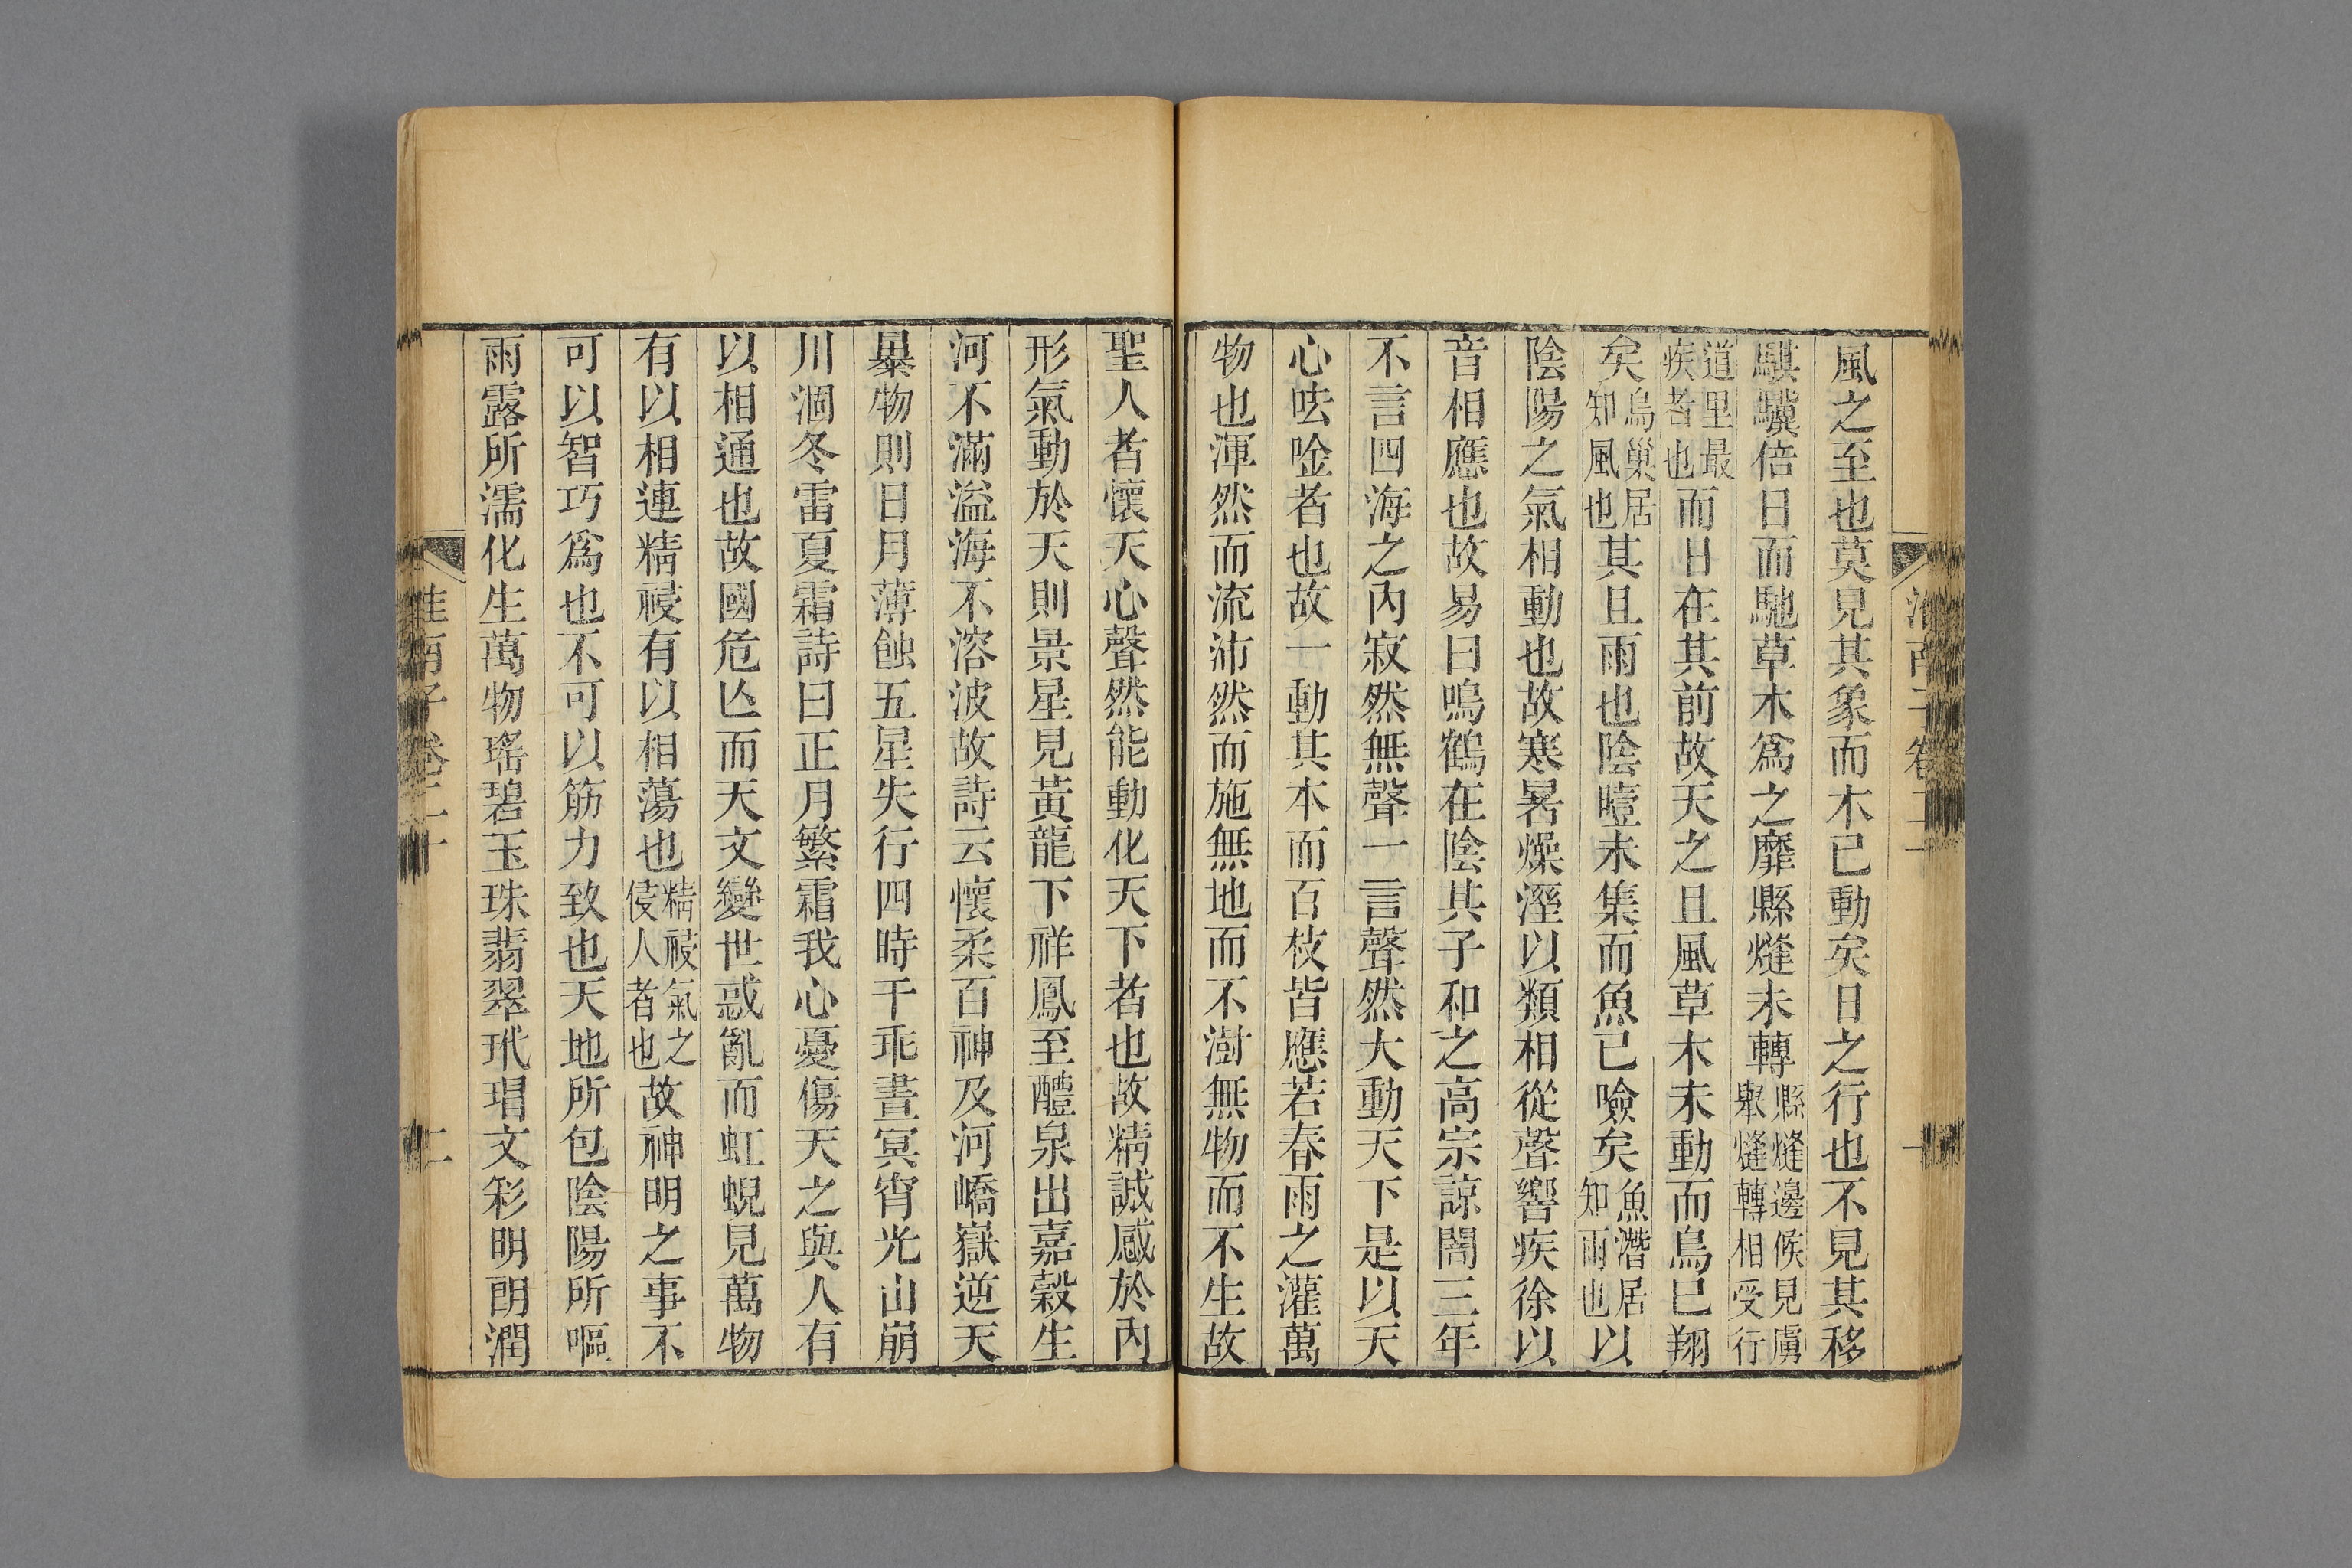 風之至也莫見其象而木已動矣日之行也不見其移
騏驥倍日而馳草木爲之靡縣熢未轉縣熢邊候見虜舉熢轉相受行
道里最疾者也而日在其前故天之且風草木未動而鳥已翔
矣鳥巢居知風也其且雨也陰曀未集而魚已噞矣魚潛居知雨也以
陰陽之氣相動也故寒暑燥溼以類相從聲響疾徐以
音相應也故易曰鳴鶴在陰其子和之高宗諒闇三年
不言四海之內寂然無聲一言聲然大動天下是以天
心呿唫者也故一動其本而百枝皆應若春雨之灌萬
物也渾然而流沛然而施無地而不澍無物而不生故
聖人者懷天心聲然能動化天下者也故精誠感於內
形氣動於天則景星見黃龍下祥鳳至醴泉出嘉穀生
河不滿溢海不溶波故詩云懷柔百神及河嶠嶽逆天
暴物則日月薄蝕五星失行四時干乖晝冥宵光山崩
川涸冬雷夏霜詩曰正月繁霜我心憂傷天之與人有
以相通也故國危亾而天文變世惑亂而虹蜺見萬物
有以相連精祲有以相蕩也精祲氣之侵人者也故神明之事不
可以智巧爲也不可以筋力致也天地所包陰陽所嘔
雨露所濡化生萬物瑤碧玉珠翡翠玳瑁文彩明朗潤
淮南子卷二十 二